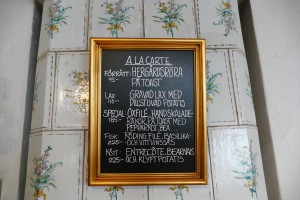 A LA CARTE
FÖRRÄTT: HERGÅRDSRÖRA
95:- PÅ TOAST
LAX: GRAVAD LAX MED
DILLSTUVAD POTATIS
SPECIAL: OXFILÉ, HANDSKALADE
RÄKOR PÅ TOAST MED
PEPPARROT, BEA
FISK: RÖDING FILÉ, BASILIKA-
225:- OCH VITTVINSSÅS
KÖTT: ENTRECÔTE, BEARNAIS
225:- OCH KLYFTPOTATIS